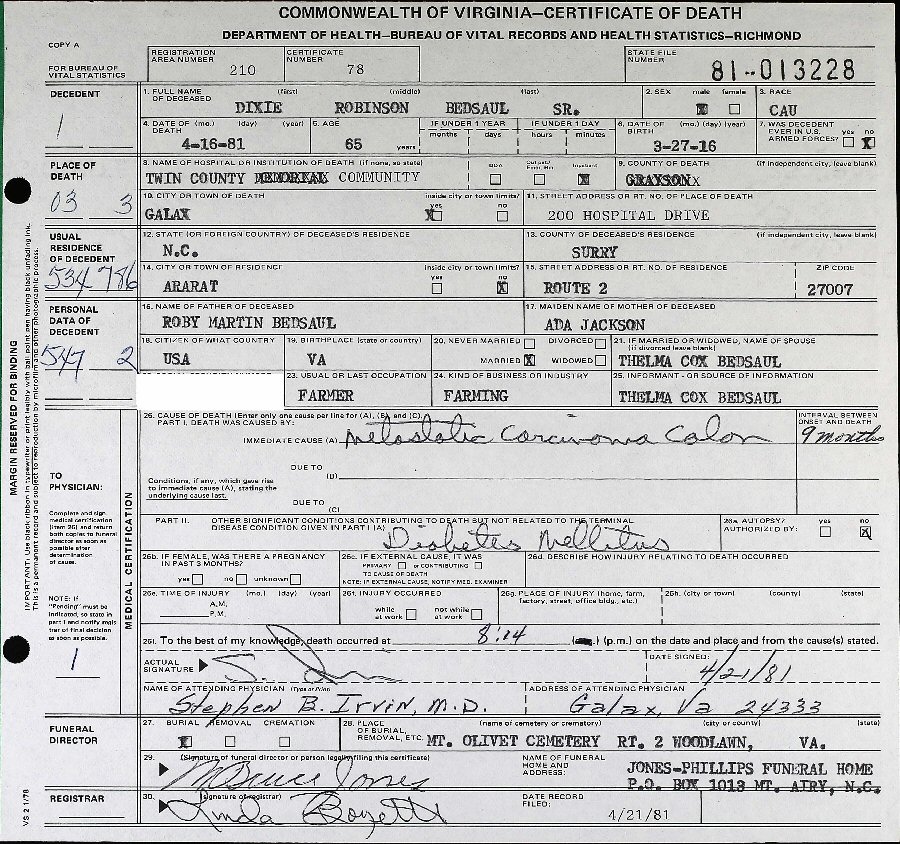 COMMONWEALTH OF VIRGINIA—CERTIFICATE OF DEATH
DEPARTMENT OF HEALTH—BUREAU OF VITAL RECORDS AND HEALTH STATISTICS—RICHMOND
COPY A
FOR BUREAU OF VITAL STATISTICS
REGISTRATION AREA NUMBER 210
CERTIFICATE NUMBER 78
STATE FILE NUMBER 81-013228
DECEDENT
1
1. FULL NAME OF DECEASED (first) (middle) (last)
DIXIE ROBINSON BEDSAUL SR.
2. SEX male female
X
3. RACE
CAU
4. DATE OF DEATH (mo.) (day) (year)
4-16-81
5. AGE
65 years
IF UNDER 1 YEAR months days
IF UNDER 1 DAY hours minutes
6. DATE OF BIRTH (mo.) (day) (year)
3-27-16
7. WAS DECEDENT EVER IN U.S. ARMED FORCES? yes no
X
PLACE OF DEATH
03 3
8. NAME OF HOSPITAL OR INSTITUTION OF DEATH (if none, so state)
TWIN COUNTY MEMORIAL COMMUNITY
Inpatient
X
9. COUNTY OF DEATH (if independent city, leave blank)
GRAYSON
10. CITY OR TOWN OF DEATH inside city or town limits? yes no
GALAX X
11. STREET ADDRESS OR RT. NO. OF PLACE OF DEATH
200 HOSPITAL DRIVE
USUAL RESIDENCE OF DECEDENT
534 786
12. STATE (OR FOREIGN COUNTRY) OF DECEASED'S RESIDENCE
N.C.
13. COUNTY OF DECEASED'S RESIDENCE (if independent city, leave blank)
SURRY
14. CITY OR TOWN OF RESIDENCE inside city or town limits? yes no
ARARAT X
15. STREET ADDRESS OR RT. NO. OF RESIDENCE
ROUTE 2
ZIP CODE
27007
PERSONAL DATA OF DECEDENT
547 2
16. NAME OF FATHER OF DECEASED
ROBY MARTIN BEDSAUL
17. MAIDEN NAME OF MOTHER OF DECEASED
ADA JACKSON
18. CITIZEN OF WHAT COUNTRY
USA
19. BIRTHPLACE (state or country)
VA
20. NEVER MARRIED DIVORCED
MARRIED X WIDOWED
21. IF MARRIED OR WIDOWED, NAME OF SPOUSE (if divorced leave blank)
THELMA COX BEDSAUL
23. USUAL OR LAST OCCUPATION
FARMER
24. KIND OF BUSINESS OR INDUSTRY
FARMING
25. INFORMANT - OR SOURCE OF INFORMATION
THELMA COX BEDSAUL
MARGIN RESERVED FOR BINDING
TO PHYSICIAN:
Complete and sign medical certification (item 26) and return both copies to funeral director as soon as possible after determination of cause.
NOTE: If "Pending" must be indicated, so state in part I and notify registrar of final decision as soon as possible.
1
MEDICAL CERTIFICATION
26. CAUSE OF DEATH (Enter only one cause per line for (A), (B) and (C).
PART I. DEATH WAS CAUSED BY:
IMMEDIATE CAUSE (A) Metastatic Carcinoma Colon
INTERVAL BETWEEN ONSET AND DEATH
9 months
DUE TO
(B)
Conditions, if any, which gave rise to immediate cause (A), stating the underlying cause last.
DUE TO
(C)
PART II. OTHER SIGNIFICANT CONDITIONS CONTRIBUTING TO DEATH BUT NOT RELATED TO THE TERMINAL DISEASE CONDITION GIVEN IN PART I (A)
Diabetes Mellitus
26a. AUTOPSY? AUTHORIZED BY: yes no
X
26b. IF FEMALE, WAS THERE A PREGNANCY IN PAST 3 MONTHS?
yes no unknown
26c. IF EXTERNAL CAUSE, IT WAS
PRIMARY or CONTRIBUTING
TO CAUSE OF DEATH
NOTE: IF EXTERNAL CAUSE, NOTIFY MED. EXAMINER
26d. DESCRIBE HOW INJURY RELATING TO DEATH OCCURRED
26e. TIME OF INJURY (mo.) (day) (year)
A.M.
P.M.
26f. INJURY OCCURRED
while at work not while at work
26g. PLACE OF INJURY (home, farm, factory, street, office bldg., etc.)
26h. (city or town) (county) (state)
26i. To the best of my knowledge, death occurred at 8:14 (a.m.) (p.m.) on the date and place and from the cause(s) stated.
ACTUAL SIGNATURE
DATE SIGNED:
4/21/81
NAME OF ATTENDING PHYSICIAN (Type or Print)
Stephen B. Irvin, M.D.
ADDRESS OF ATTENDING PHYSICIAN
Galax, Va 24333
FUNERAL DIRECTOR
27. BURIAL REMOVAL CREMATION
X
28. PLACE OF BURIAL, REMOVAL, ETC. (name of cemetery or crematory) (city or county) (state)
MT. OLIVET CEMETERY RT. 2 WOODLAWN, VA.
29. (Signature of funeral director or person legally filing this certificate)
Bruce Jones
NAME OF FUNERAL HOME AND ADDRESS:
JONES-PHILLIPS FUNERAL HOME
P.O. BOX 1013 MT. AIRY, N.C.
REGISTRAR
30. (signature of registrar)
Linda
DATE RECORD FILED:
4/21/81
VS 2 1/78